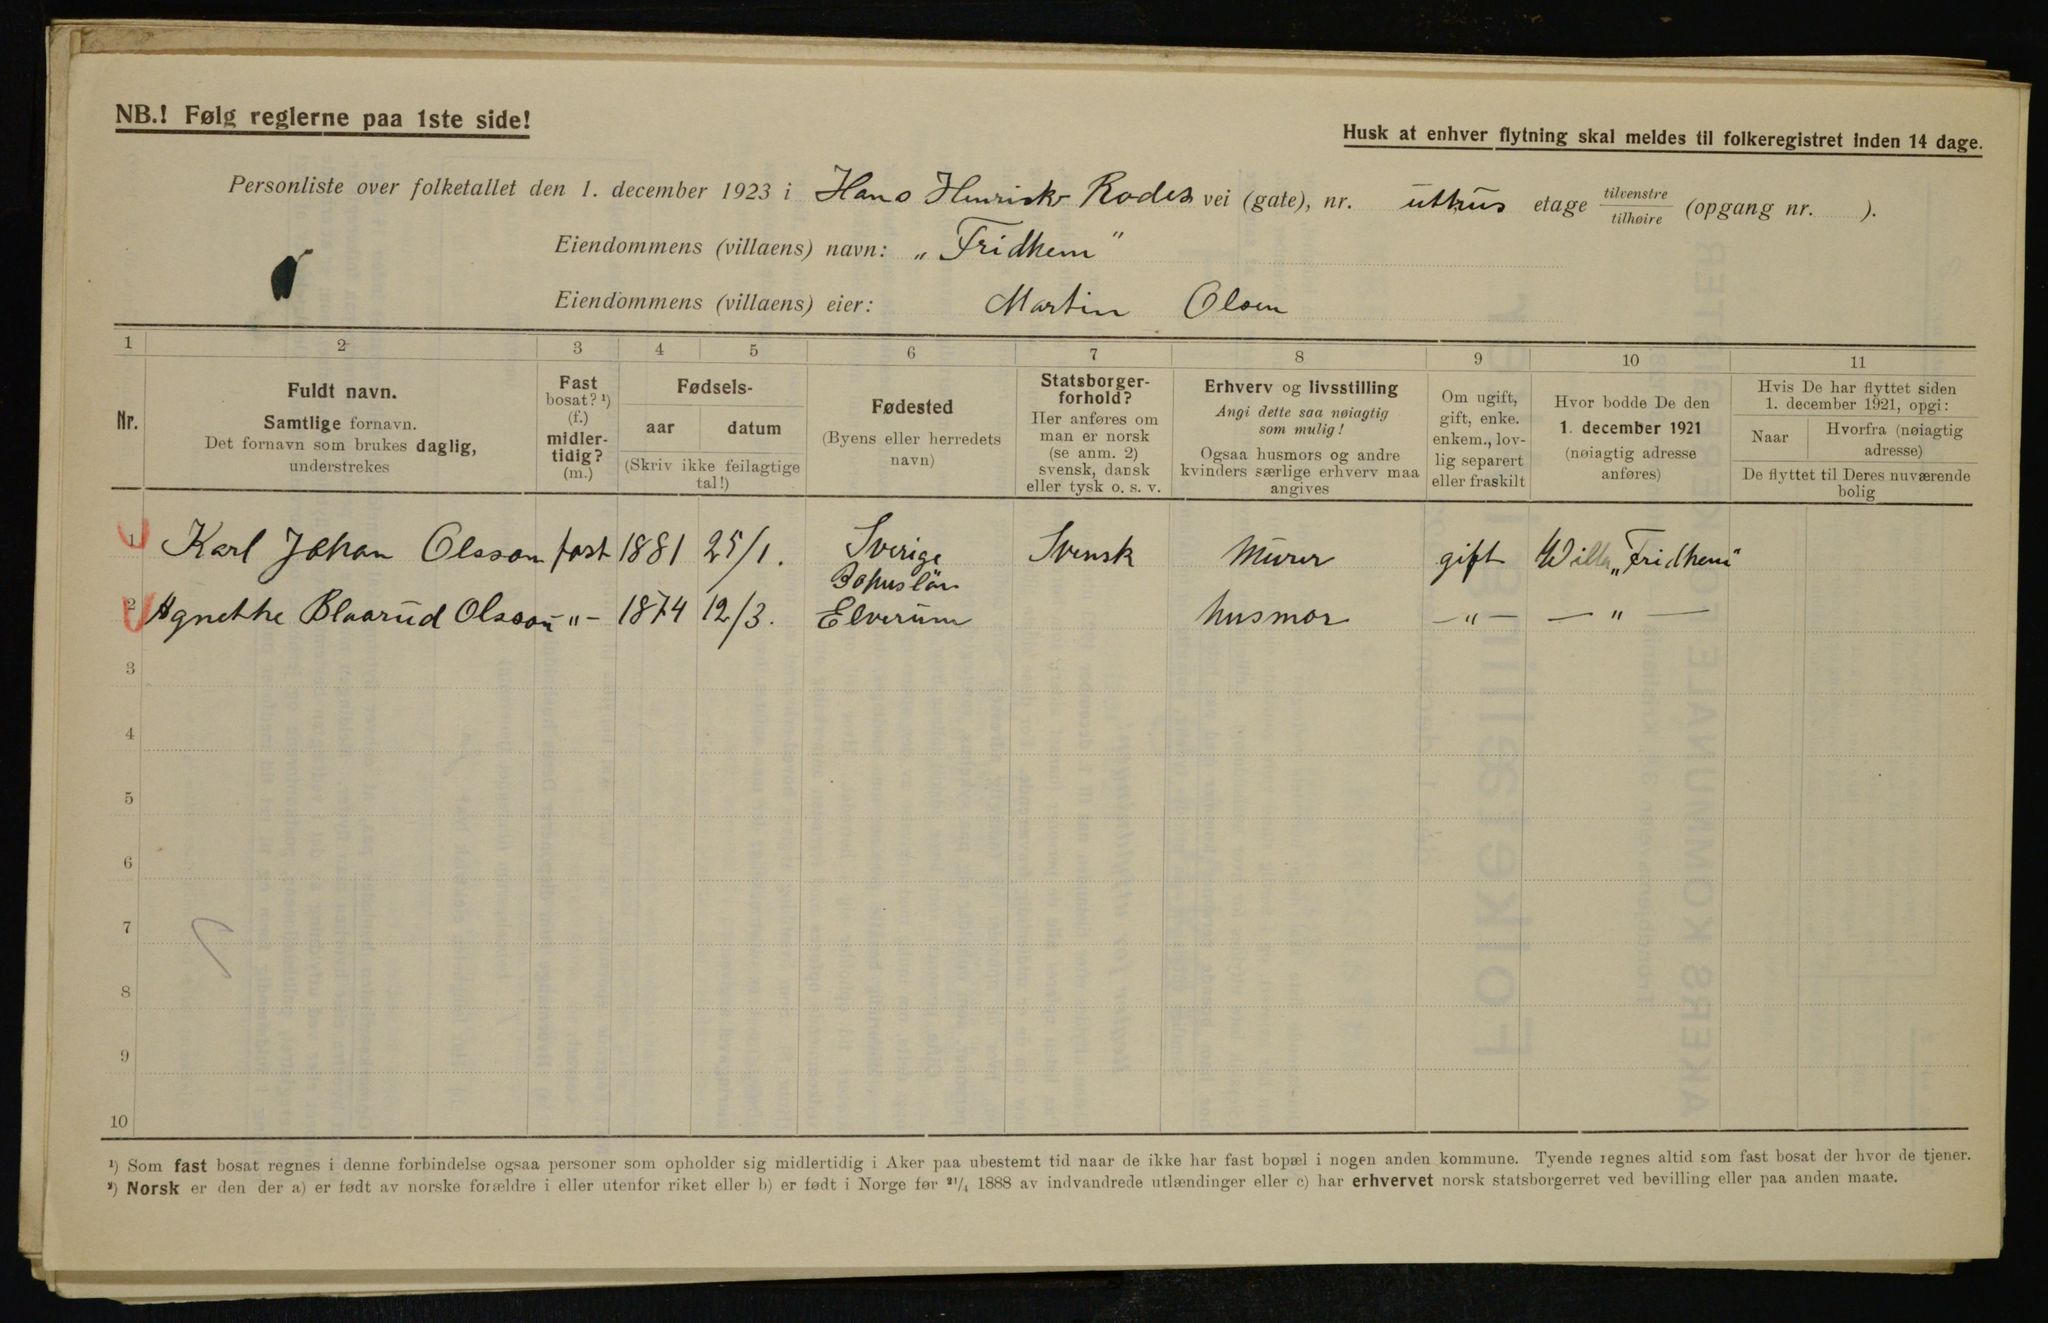 NB.! Følg reglerne paa 1ste side!
Husk at enhver flytning skal meldes til folkeregistret inden 14 dage.
Personliste over folketallet den 1. december 1923 i Hans Henrik Rodes vei (gate), nr. uthus etage tilvenstre tilhøire (opgang nr. ).
Eiendommens (villaens) navn: „Fridhem"
Eiendommens (villaens) eier: Martin Olsen
1 2 3 4 5 6 7 8 9 10 11
Nr.
Fuldt navn.
Samtlige fornavn.
Det fornavn som brukes daglig,
understrekes
Fast
bosat? ¹)
(f.)
midler-
tidig?
(m.)
Fødsels-
aar datum
(Skriv ikke feilagtige
tal!)
Fødested
(Byens eller herredets
navn)
Statsborger-
forhold?
Her anføres om
man er norsk
(se anm. 2)
svensk, dansk
eller tysk o. s. v.
Erhverv og livsstilling
Angi dette saa nøiagtig
som mulig!
Ogsaa husmors og andre
kvinders særlige erhverv maa
angives
Om ugift,
gift, enke.
enkem., lov-
lig separert
eller fraskilt
Hvor bodde De den
1. december 1921
(nøiagtig adresse
anføres)
Hvis De har flyttet siden
1. december 1921, opgi:
Naar
Hvorfra (nøiagtig
adresse)
De flyttet til Deres nuværende
bolig
1 Karl Johan Olsson fast 1881 25/1. Sverige Bohuslän Svensk Murer gift Willa „Fridhem"
2 Agnethe Blaarud Olsson „ – 1874 12/3. Elverum husmor — „ — — „ —
3
4
5
6
7
8
9
10
¹) Som fast bosat regnes i denne forbindelse ogsaa personer som opholder sig midlertidig i Aker paa ubestemt tid naar de ikke har fast bopæl i nogen anden kommune. Tyende regnes altid som fast bosat der hvor de tjener.
²) Norsk er den der a) er født av norske forældre i eller utenfor riket eller b) er født i Norge før ²¹/₄ 1888 av indvandrede utlændinger eller c) har erhvervet norsk statsborgerret ved bevilling eller paa anden maate.